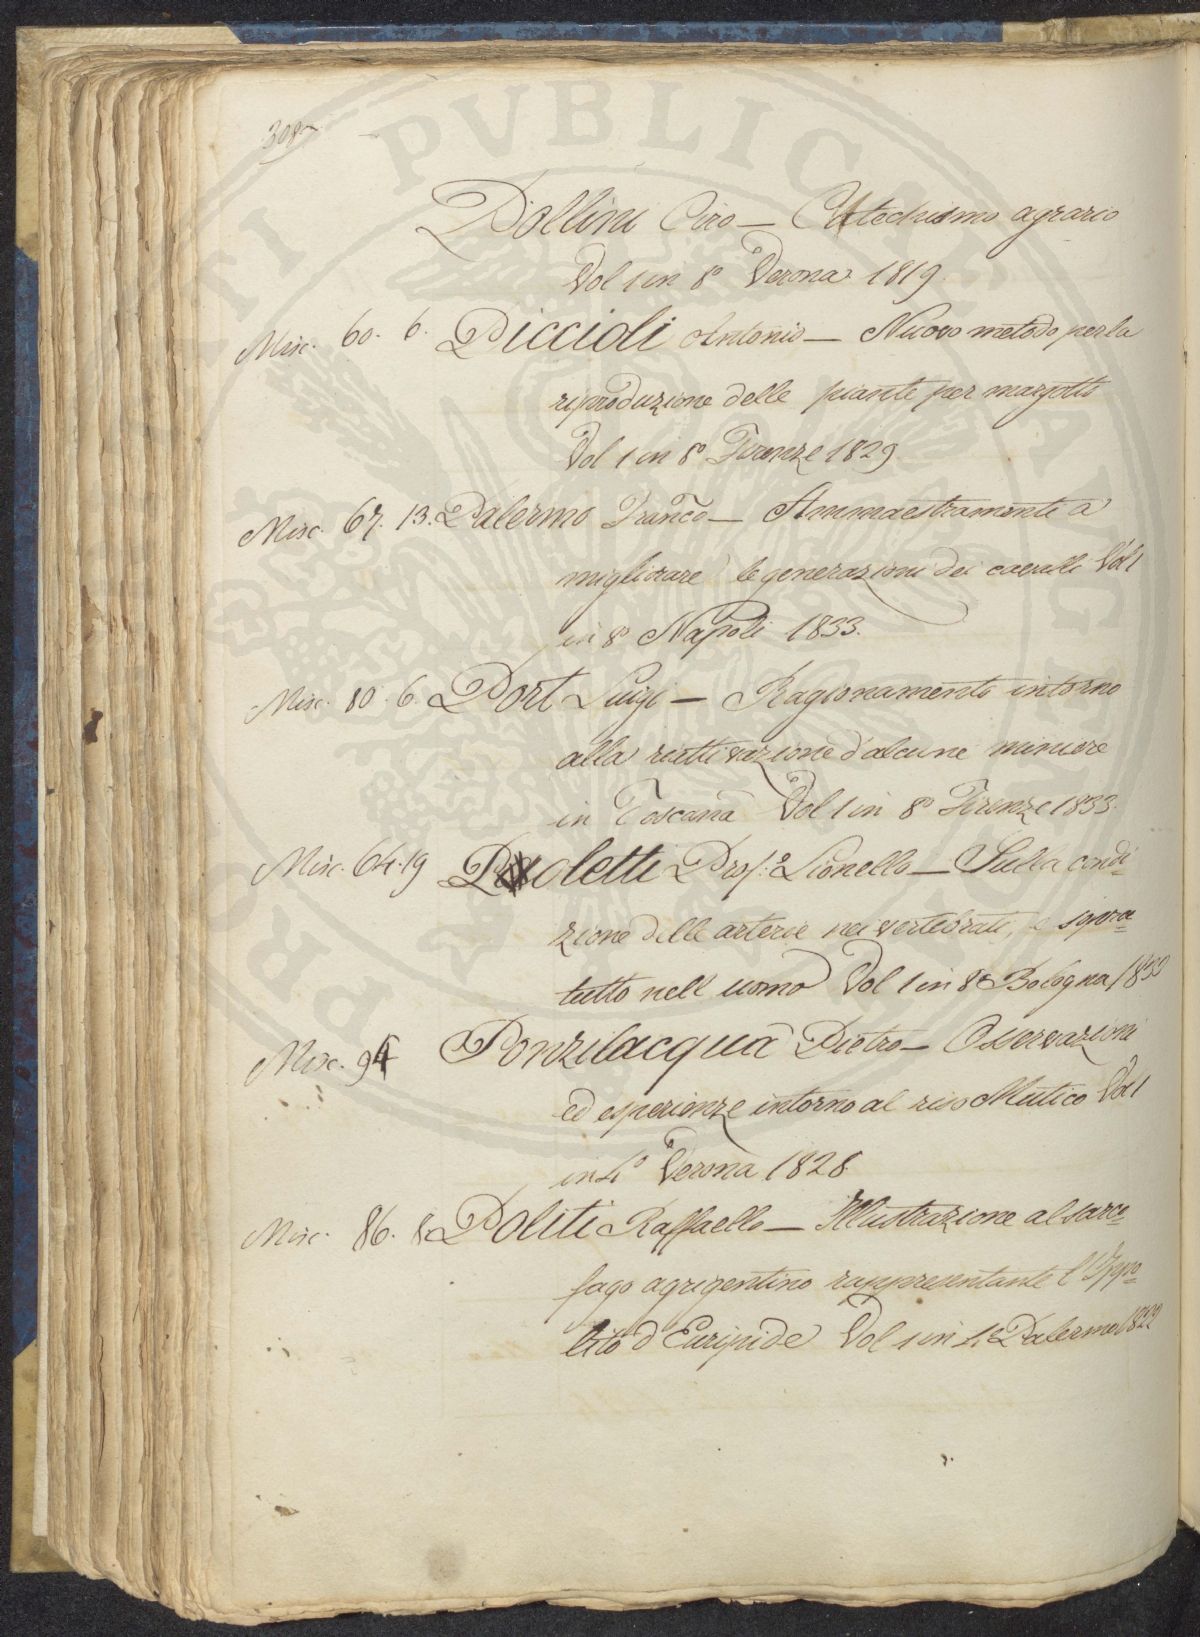 308
Pollini Ciro — Catechismo agrario
Vol 1 in 8º Verona 1819.
Misc. 60. 6. Piccioli Antonio — Nuovo metodo per la
riproduzione delle piante per margotti
Vol 1 in 8º Firenze 1829.
Misc. 67. 13. Palermo Franco — Ammaestramenti a
migliorare le generazioni dei cavalli Vol 1
in 8º Napoli 1833.
Misc. 80. 6. Port Luigi — Ragionamento intorno
alla riattivazione d'alcune miniere
in Toscana Vol 1 in 8º Firenze 1833.
Misc. 64. 19 Poletti Prof.e Lionello — Sulla condi=
zione delle arterie nei vertebrati, e sopra=
tutto nell uomo Vol 1 in 8º Bologna 1833
Misc. 94 Ponzilacqua Pietro — Osservazioni
ed esperienze intorno al riso Mutico Vol 1
in 4º Verona 1828
Misc. 86. 8. Politi Raffaello — Illustrazione al sarco=
fago agrigentino rappresentante l'Ippo=
lito d Euripide Vol 1 in 4º Palermo 1822
PUBLICAE